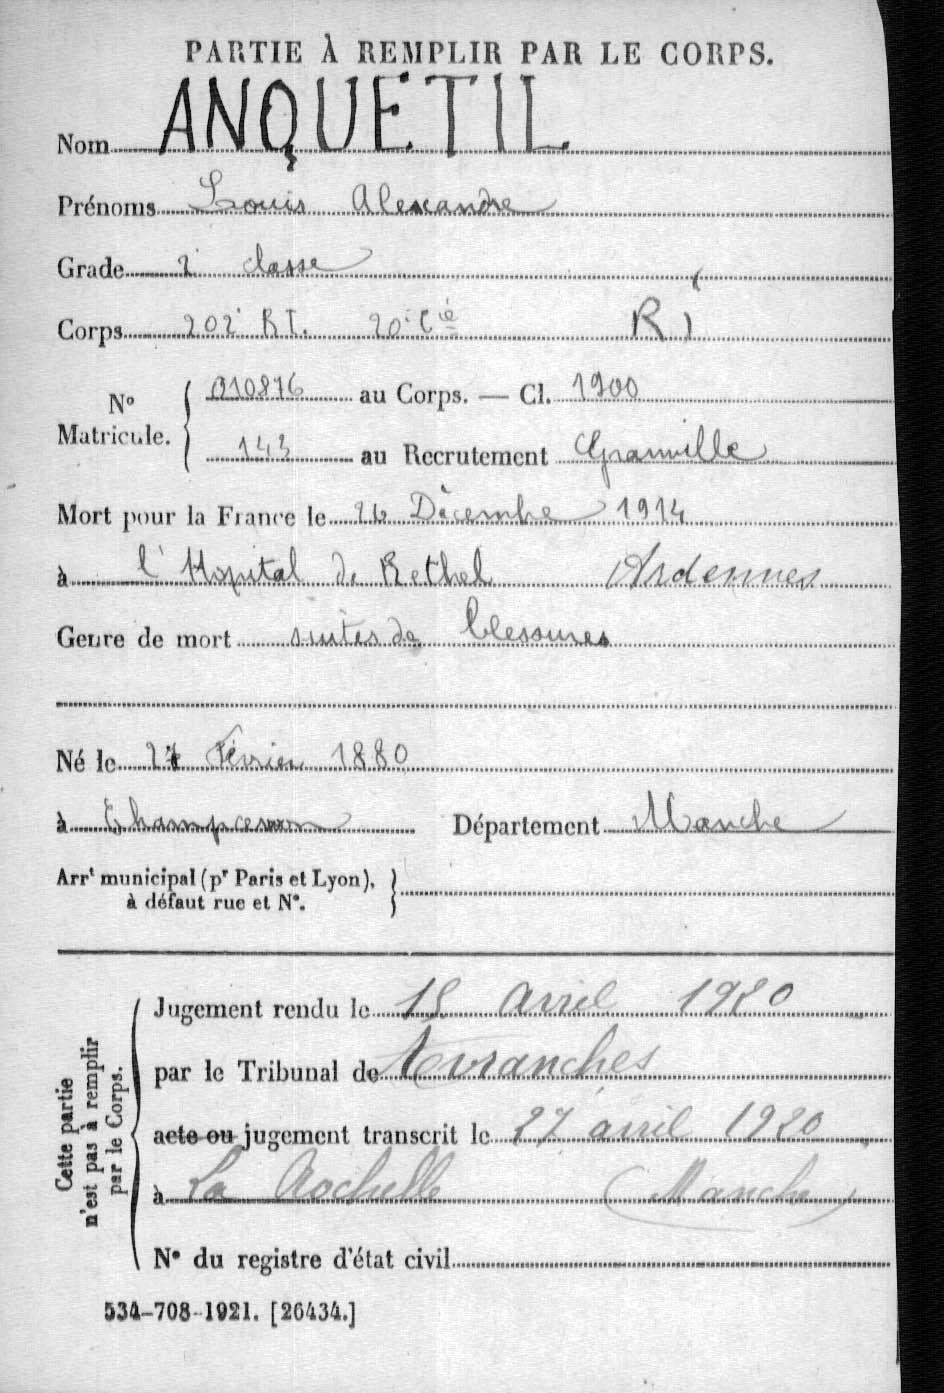 PARTIE À REMPLIR PAR LE CORPS.
Nom ANQUETIL
Prénoms Louis Alexandre
Grade 2e classe
Corps 202e RI. 20e Cie RI
No Matricule. 010876 au Corps. — Cl. 1900
143 au Recrutement Granville
Mort pour la France le 26 Décembre 1914
à l'Hopital de Rethel Ardennes
Genre de mort suites de blessures
Né le 27 Février 1880
à Champcervon Département Manche
Arrt municipal (pr Paris et Lyon), à défaut rue et No.
Cette partie n'est pas à remplir par le Corps.
Jugement rendu le 15 avril 1920
par le Tribunal de Avranches
acte ou jugement transcrit le 27 avril 1920
à La Rochelle (Manche)
No du registre d'état civil
534-708-1921. [26434.]